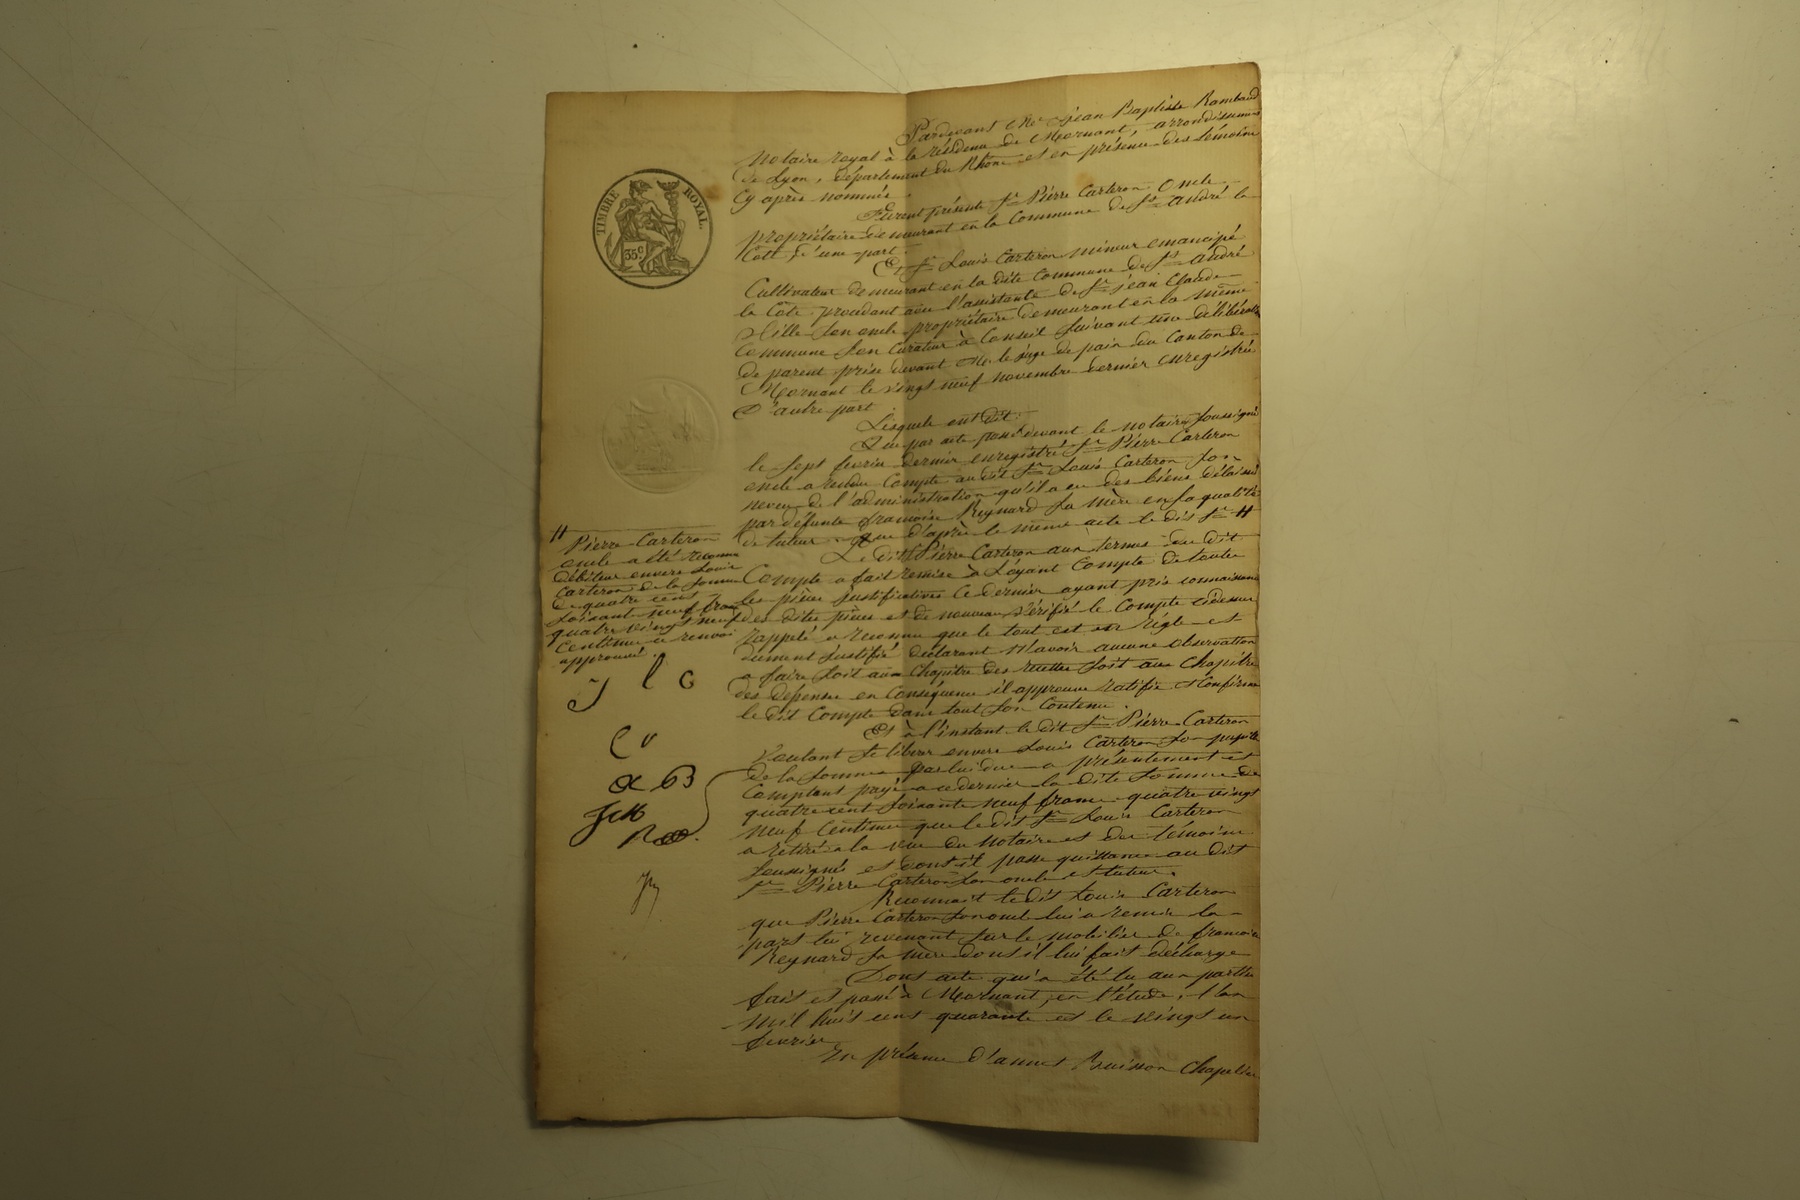 TIMBRE ROYAL.
35 c
Pardevant Me jean Baptiste Rambaud
Notaire royal à la résidence de Mornant, arrondissement
de Lyon, département du Rhône et en présence des témoins
Cy après nommés.
Furent présents Sr Pierre Carteron Oncle
propriétaire demeurant en la Commune de St André la
Côte, d'une part.
Et Sr Louis Carteron mineur emancipé
Cultivateur demeurant en la dite Commune de St André
la Côte procédant avec l'assistance de Sr jean Claude
son oncle propriétaire demeurant en la même
Commune son Curateur à Conseil suivant une délibération
de parent prise devant Mr le juge de paix du Canton de
Mornant le vingt neuf novembre dernier enregistrée
D'autre part.
Lesquels ont dit:
Que par acte passé devant le notaire soussigné
le sept fevrier dernier enregistré Sr Pierre Carteron
oncle a rendu Compte au dit Sr Louis Carteron son
neveu de l'administration qu'il a eu des biens délaissés
par défunte françoise Reynard sa mère en sa qualité
de tuteur. Que d'après le même acte le dit Sr #
# Pierre Carteron
oncle a été reconnu
débiteur envers Louis
Carteron de la somme
de quatre cent
soixante neuf francs
quatre vingt neuf
Centimes ce renvoi
approuvé.
Le dit Pierre Carteron aux termes du dit
Compte a fait remise à L'oyant Compte de toutes
les pièces justificatives Ce dernier ayant pris connaissance
des dites pièces et de nouveau vérifié le Compte cidessus
rappelé a reconnu que le tout est en règle et
dument justifié déclarant N'avoir aucune observation
a faire soit aux Chapitre des recettes soit aux Chapitre
des dépenses en Conséquence il approuve ratifie et Confirme
le dit Compte dans tout son Contenu.
Et à l'instant le dit Sr Pierre Carteron
Voulant se libérer envers Louis Carteron son pupille
de la somme par lui due a présentement et
Comptant payé a ce dernier la dite somme de
quatre cent soixante neuf francs quatre vingt
neuf Centimes que le dit Sr Louis Carteron
a retiré a la vue du Notaire et des témoins
soussignés et dont il passe quittance au dit
Sr Pierre Carteron son oncle et tuteur.
Reconnait le dit Louis Carteron
que Pierre Carteron son oncle lui a remis la
part lui revenant sur le mobilier de françoise
Reynard sa mère dont il lui fait décharge
Dont acte qui a été lu aux parties
fait et passé à Mornant, en l'étude, l'an
mil huit cent quarante et le vingt un
fevrier
En présence d'annet Buisson Chapelier